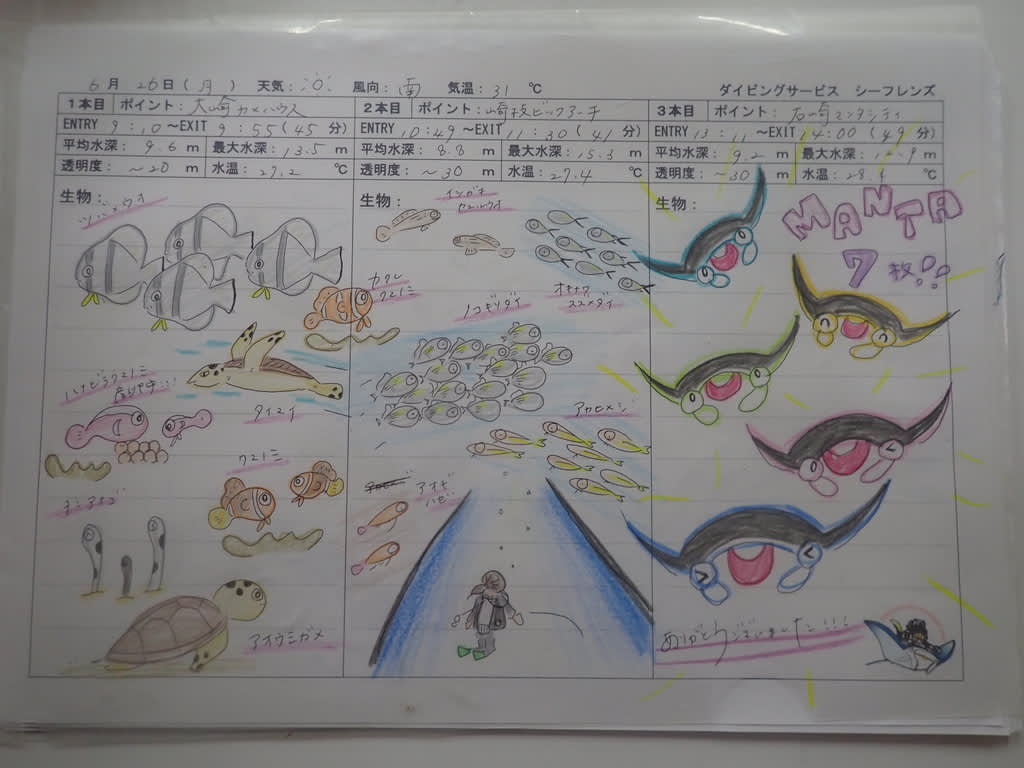 6月 26日(月) 天気: 風向:南 気温:31 ℃ ダイビングサービス シーフレンズ
1本目 ポイント:大崎カメハウス
ENTRY 9:10〜EXIT 9:55(45分)
平均水深:9.6 m 最大水深:13.5 m
透明度:〜20 m 水温:27.2 ℃
生物:
ツバメウオ
カクレ
クマノミ
ハナビラクマノミ
産卵中!!!
タイマイ
クマノミ
チンアナゴ
アオウミガメ
2本目 ポイント:崎枝ビッグアーチ
ENTRY 10:49〜EXIT 11:30(41分)
平均水深:8.8 m 最大水深:15.3 m
透明度:〜30 m 水温:27.4 ℃
生物:
ノコギリダイ
アカヒメジ
アオギハゼ
3本目 ポイント:石崎マンタシティ
ENTRY 13:11〜EXIT 14:00(49分)
平均水深:9.2 m 最大水深: m
透明度:〜30 m 水温:28.1 ℃
生物:
MANTA
7枚!!
ありがとうございました!!!